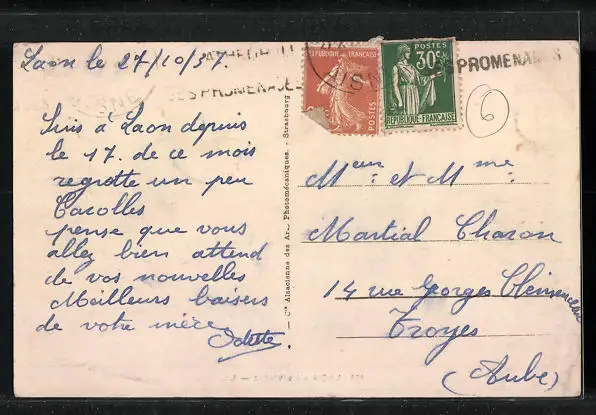 Laon le 27/10/37.
RÉPUBLIQUE FRANÇAISE
POSTES
POSTES
30c
RÉPUBLIQUE FRANÇAISE
SES PROMENADES
AISNE
PROMENADES
6
Suis à Laon depuis
le 17. de ce mois
regrette un peu
Carolles
pense que vous
allez bien attend
de vos nouvelles
Meilleurs baisers
de votre nièce
Odette.
Cie Alsacienne des Arts Photomécaniques. - Strasbourg
Meur et Mme
Martial Charon
14 rue Gorges Clémenceau
Troyes
(Aube)